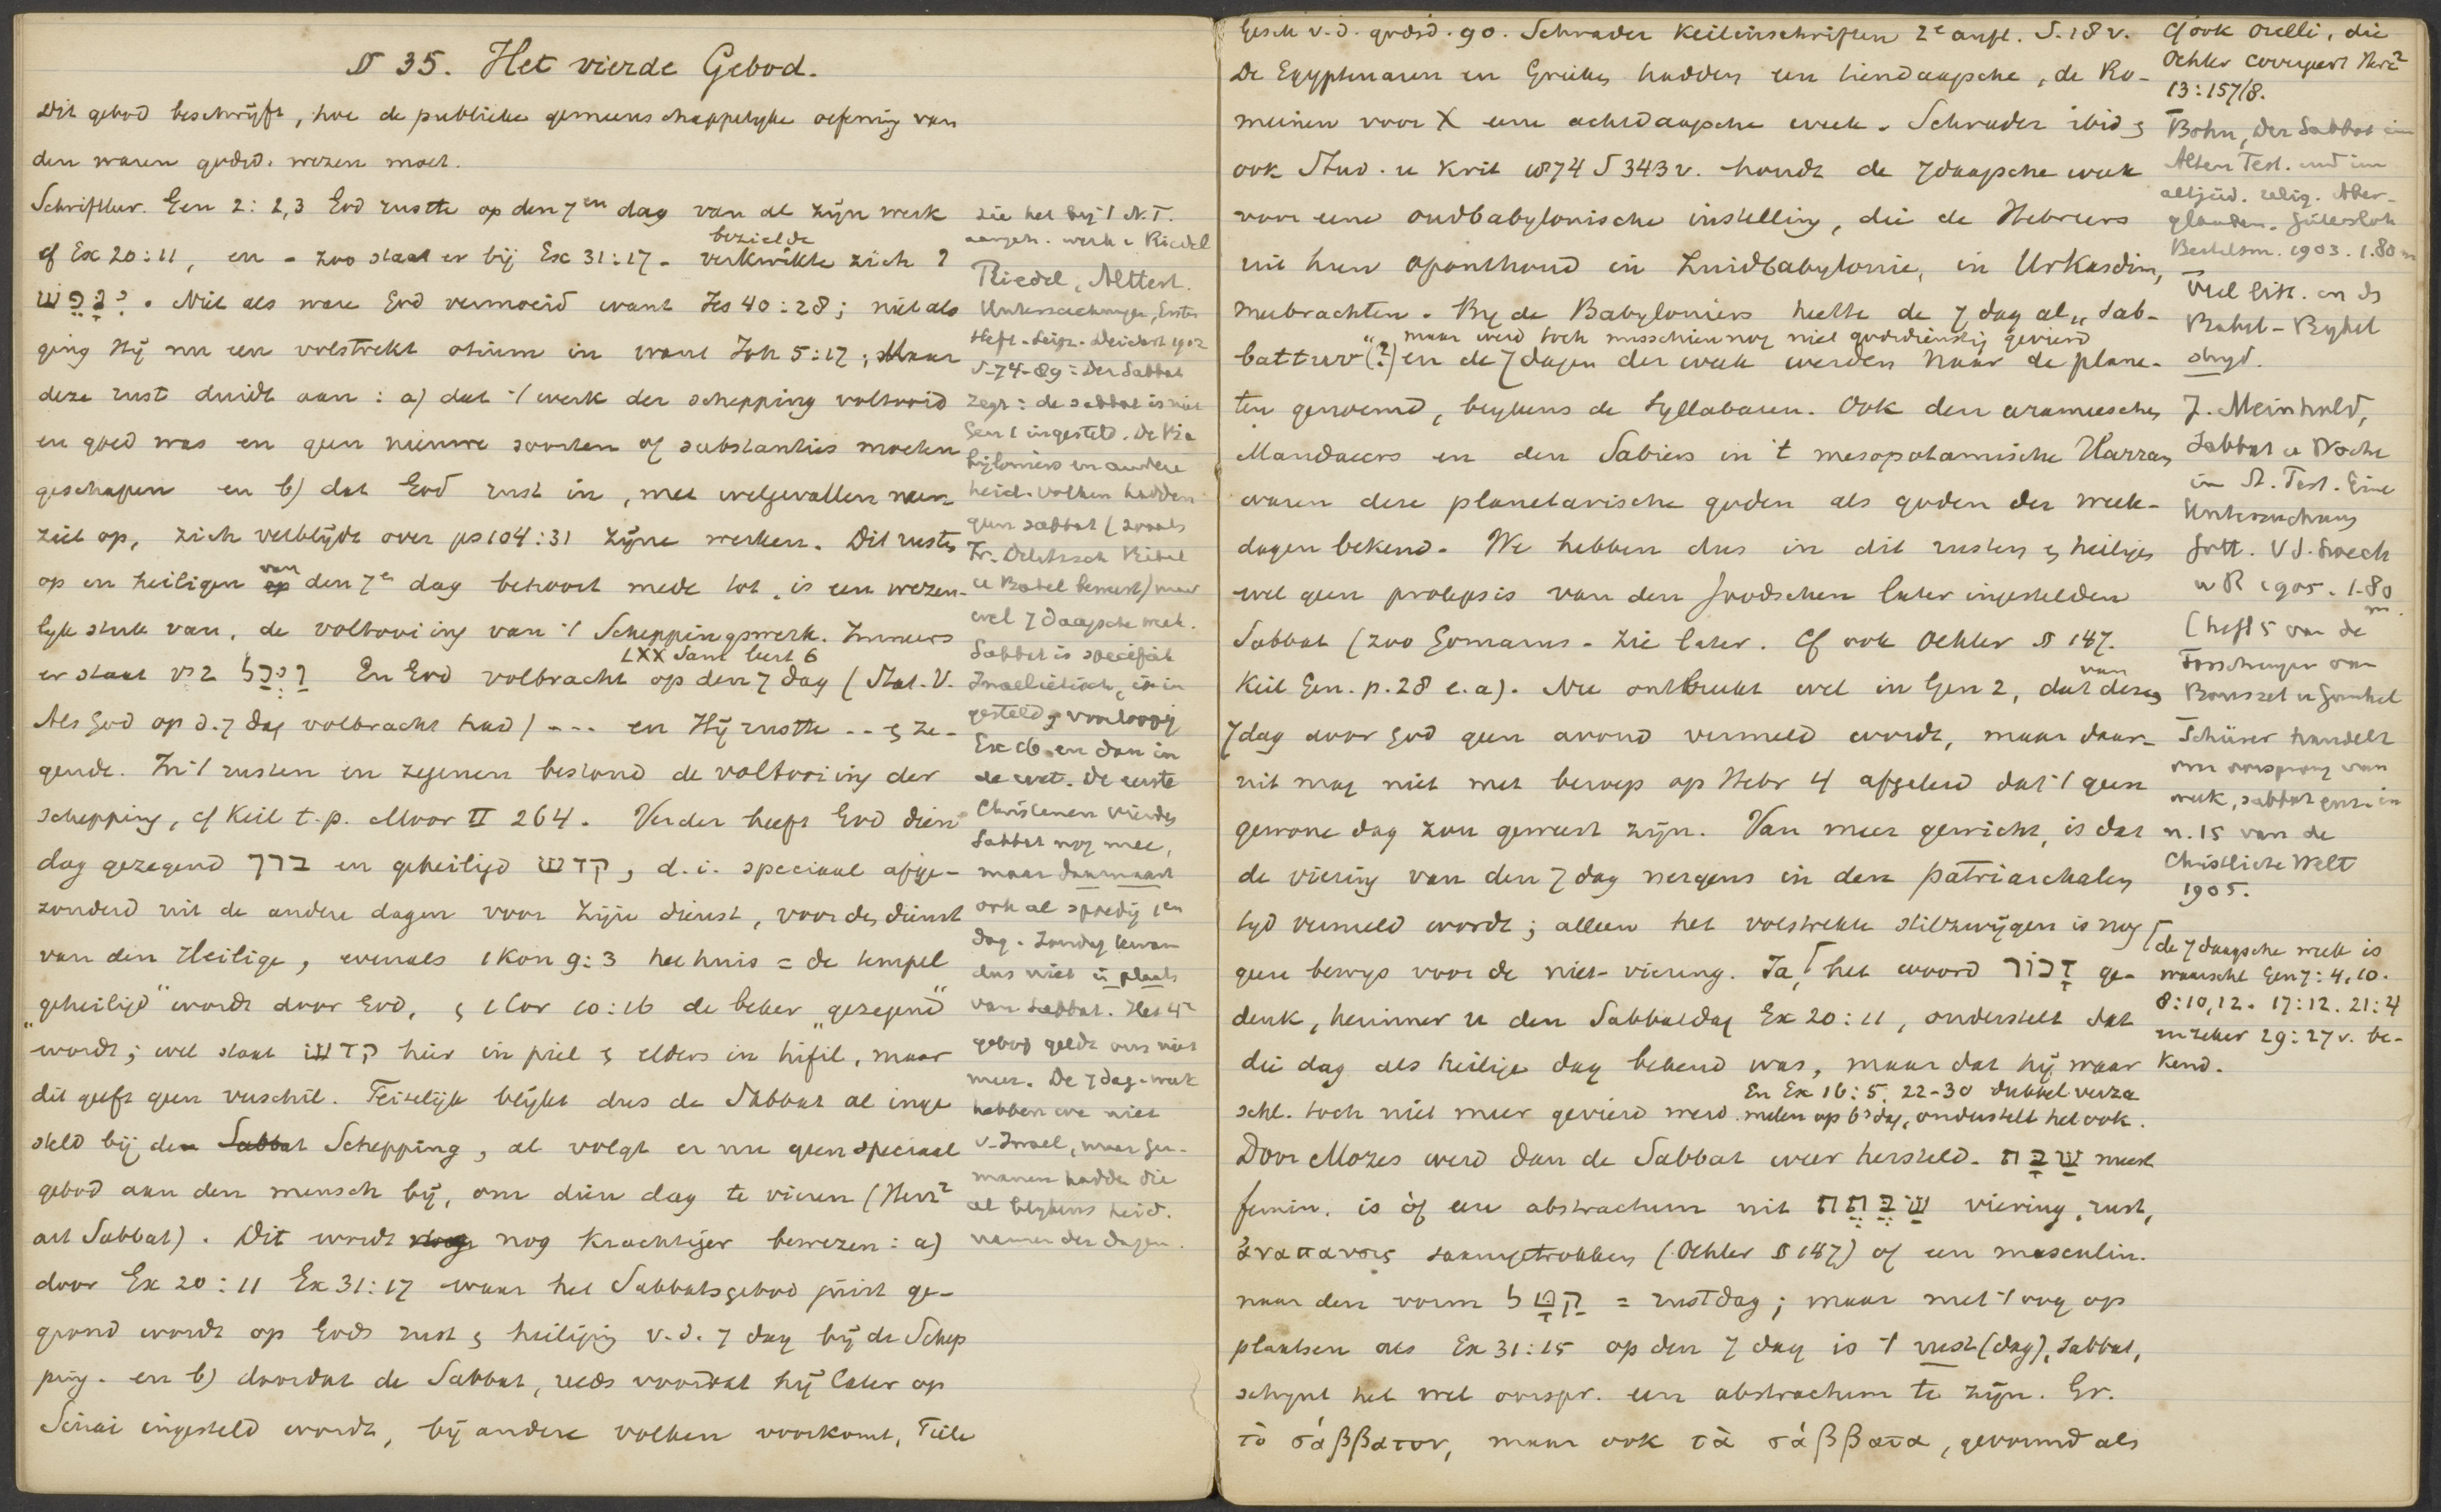 § 35. Het vierde Gebod.
Dit gebod beschrijft, hoe de publieke gemeenschappelyke oefening van
den waren godsd. wezen moet.
Schriftleer. Gen 2: 2,3 God rustte op den 7en dag van al zijn werk
cf Ex 20:11, en - zoo staat er bij Ex 31:17 - bezielde verkwikte zich?
וינפש. Niet als ware God vermoeid want Jes 40:28; niet als
ging Hij nu een volstrekt otium in want Joh 5:17; Maar
deze rust duidt aan: a) dat 't werk der schepping voltooid
en goed was en geen nieuwe soorten of substanties moeten
geschapen en b) dat God rust in, met welgevallen neer-
ziet op, zich verblijdt over ps 104:31 zijne werken. Dit rusten
op en heiligen van den 7e dag behoort mede tot, is een wezen-
lyk stuk van, de voltooiing van 't Scheppingswerk. Immers
LXX Sam leest 6
er staat vs 2 ויכל En God volbracht op den 7 dag (Stat. V.
Als God op d. 7 dag volbracht had) --- en Hij rustte .. en ze-
gende. In 't rusten en zegenen bestond de voltooiing der
schepping, cf Keil t.p. Moor II 264. Verder heeft God dien
dag gezegend ברך en geheiligd קדש, d.i. speciaal afge-
zonderd uit de andere dagen voor Zijn dienst, voor den dienst
van den Heilige, evenals 1 Kon 9:3 het huis = de tempel
„geheiligd" wordt door God, en 1 Cor 10:16 de beker „gezegend"
wordt; wel staat קדש hier in piel en elders in hifil, maar
dit geeft geen verschil. Feitelijk blijkt dus de Sabbat al inge
steld bij den Sabbat Schepping, al volgt er nu geen speciaal
gebod aan den mensch bij, om dien dag te vieren (Herz²
art Sabbat). Dit wordt nog krachtiger bewezen: a)
door Ex 20:11 Ex 31:17 waar het Sabbatsgebod juist ge-
grond wordt op Gods rust en heiliging v.d. 7 dag bij de Schep
ping. en b) doordat de Sabbat, reeds voordat hij later op
Sinai ingesteld wordt, bij andere volken voorkomt, Tiele
zie het bij 't N.T.
aangeh. werk v Riedel
Riedel, Alttest.
Untersuchungen, Erstes
Heft. Leipz. Deichert 1902
S. 74-89: Der Sabbat
zegt: de sabbat is niet
Gen 1 ingesteld. De Ba
byloniers en andere
heid. volken hadden
geen sabbat (zooals
Fr. Delitzsch Bibel
u Babel beweert) maar
wel 7 daagsche week.
Sabbat is specifiek
Israelietisch, is in
gesteld voorloopig
Ex 16 en dan in
de wet. De eerste
Christenen vierden
Sabbat nog mee,
maar daarnaast
ook al spoedig 1en
dag. Zondag kwam
dus niet in plaats
van Sabbat. Het 4e
gebod geldt ons niet
meer. De 7 dag. week
hebben we niet
v. Israel, maar Ger-
manen hadden die
al blijkens heid.
namen der dagen.
Gesch v.d. godsd. 90. Schrader Keilinschriften 2e aufl. S. 18 v.
De Egyptenaren en Grieken hadden een tiendaagsche, de Ro-
meinen voor X eene achtdaagsche week. Schrader ibid en
ook Stud. u Krit 1874 S 343 v. houdt de 7daagsche week
voor eene oudbabylonische instelling, die de Hebreers
uit hun oponthoud in Zuidbabylonie, in Urkasdim,
meebrachten. By de Babyloniers heette de 7 dag al „sab-
maar werd toch misschien nog niet godsdienstig gevierd
battuv" (?) en de 7 dagen der week werden naar de plane-
ten genoemd, blykens de syllabaren. Ook den arameesche
Mandaeers en den Sabiers in 't mesopotamische Harran
waren deze planetarische goden als goden der week-
dagen bekend. We hebben dus in dit rusten en heiligen
wel geen prolepsis van den Joodschen later ingestelden
Sabbat (zoo Gomarus - zie later. Cf ook Oehler § 147.
Keil Gen. p. 28 e.a). Nu ontbreekt wel in Gen 2, dat van dezen
7 dag door God geen avond vermeld wordt, maar daar-
uit mag niet met beroep op Hebr 4 afgeleid dat 't geen
gewone dag zou geweest zijn. Van meer gewicht, is dat
de viering van den 7 dag nergens in den patriarchalen
tyd vermeld wordt; alleen het volstrekte stilzwijgen is nog
geen bewys voor de niet-viering. Ja, het woord זכור ge-
denk, herinner u den Sabbatdag Ex 20:11, onderstelt dat
die dag als heilige dag bekend was, maar dat hij waar
schl. toch niet meer gevierd werd. En Ex 16:5. 22-30 dubbel verza
melen op 6 dag, onderstelt het ook.
Door Mozes werd dan de Sabbat weer hersteld. שבת meest
femin. is òf een abstractum uit שבתת viering, rust,
ἀναπαυσις saamgetrokken (Oehler § 147) of een masculin.
naar den vorm קטל = rustdag; maar met 't oog op
plaatsen als Ex 31:15 op den 7 dag is 't rust(dag), sabbat,
schynt het wel oorspr. een abstractum te zijn. Gr.
τὸ σάββατον, maar ook τὰ σάββατα, gevormd als
Cf ook Orelli, die
Oehler corrigeert Herz²
13:157/8.
Bohn, Der Sabbat im
Alten Test. und im
altjüd. relig. Aber-
glauben. Gütersloh
Bertelsm. 1903. 1.80 m
Veel litt. in ds
Babel-Bybel
stryd.
J. Meinhold,
Sabbat u Woche
im A. Test. Eine
Untersuchung
Gött. Vd. hoeck
u R 1905. 1.80
m.
(heft 5 van de
Forschungen van
Bousset u Gunkel
Schürer handelt
over oorsprong van
week, sabbat enz. in
n. 15 van de
Christliche Welt
1905.
de 7 daagsche week is
waarschl Gen 7:4,10.
8:10,12. 17:12. 21:4
en zeker 29:27 v. be-
kend.